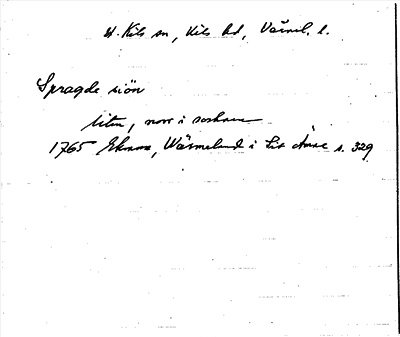 St. Kils sn, Kils hd, Värml. l.
Spragde siön
liten, norr i socknen
1765 Ekman, Wärmeland i sit Ämne s. 329